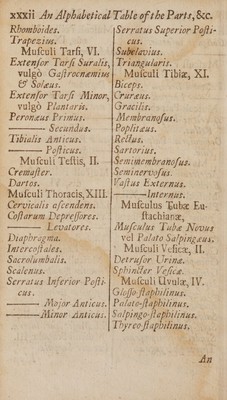 xxxii An Alphabetical Table of the Parts, &c.
Rhomboides.
Trapezius.
Musculi Tarsi, VI.
Extensor Tarsi Suralis,
vulgò Gastrocnæmius
& Solæus.
Extensor Tarsi Minor,
vulgò Plantaris.
Peronæus Primus.
—— Secundus.
Tibialis Anticus.
—— Posticus.
Musculi Testis, II.
Cremaster.
Dartos.
Musculi Thoracis, XIII.
Cervicalis ascendens.
Costarum Depressores.
—— Levatores.
Diaphragma.
Intercostales.
Sacrolumbalis.
Scalenus.
Serratus Inferior Posti-
cus.
—— Major Anticus.
—— Minor Anticus.
Serratus Superior Posti-
cus.
Subclavius.
Triangularis.
Musculi Tibiæ, XI.
Biceps.
Cruræus.
Gracilis.
Membranosus.
Poplitæus.
Rectus.
Sartorius.
Semimembranosus.
Seminervosus.
Vastus Externus.
—— Internus.
Musculus Tubæ Eu-
stachianæ,
Musculus Tubæ Novus
vel Palato Salpingæus.
Musculi Vesicæ, II.
Detrusor Urinæ.
Sphincter Vesicæ.
Musculi Uvulæ, IV.
Glosso-staphilinus.
Palato-staphilinus.
Salpingo-staphilinus.
Thyreo-staphilinus.
An